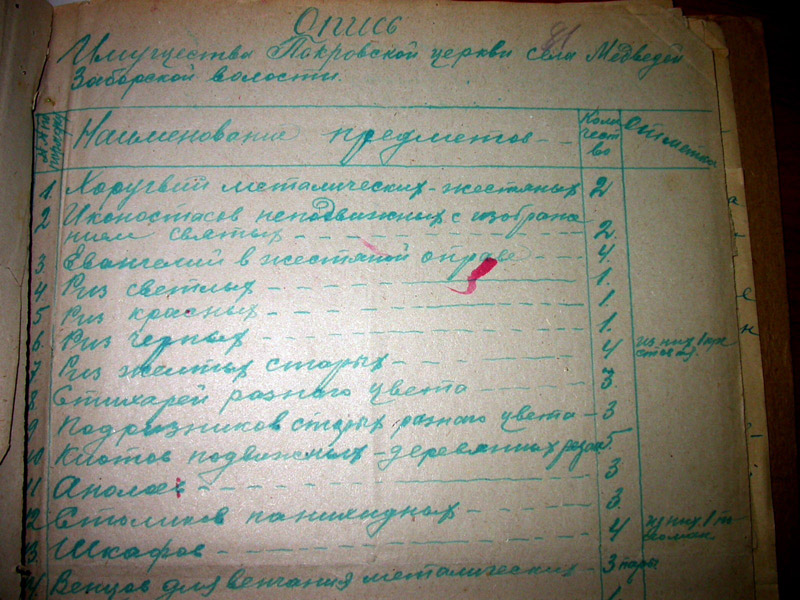 Опись
81
Имущества Покровской церкви села Медведей
Заборской волости.
№№ по порядку
Наименование предметов
Коли
чест
во
Отметка
1. Хоругвий металических-жестяных 2
2 Иконостасов неподвижных с изображе
нием святых 2.
3. Евангелий в жестяной оправе 4.
4 Риз светлых 1.
5 Риз красных 1.
6 Риз черных 1.
7 Риз желтых старых 4 из них 1
8 Стихарей разного цвета 3.
9 Подризников старых разного цвета 3
10 Киотов подвижных-деревянных 5.
11 Аполое 3
12 Столиков панихидных 3.
13. Шкафов 4 из них 1
14 Венцов для венчания металических 3 пары